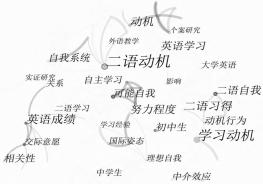 动机
个案研究
外语教学
英语学习
自我系统
二语动机
大学英语
实证研究
关系
自主学习
影响
可能自我
二语自我
二语学习
努力程度
二语习得
英语成绩
学习经验
初中生
动机行为
交际意愿
国际姿态
学习动机
相关性
理想自我
中学生
中介效应